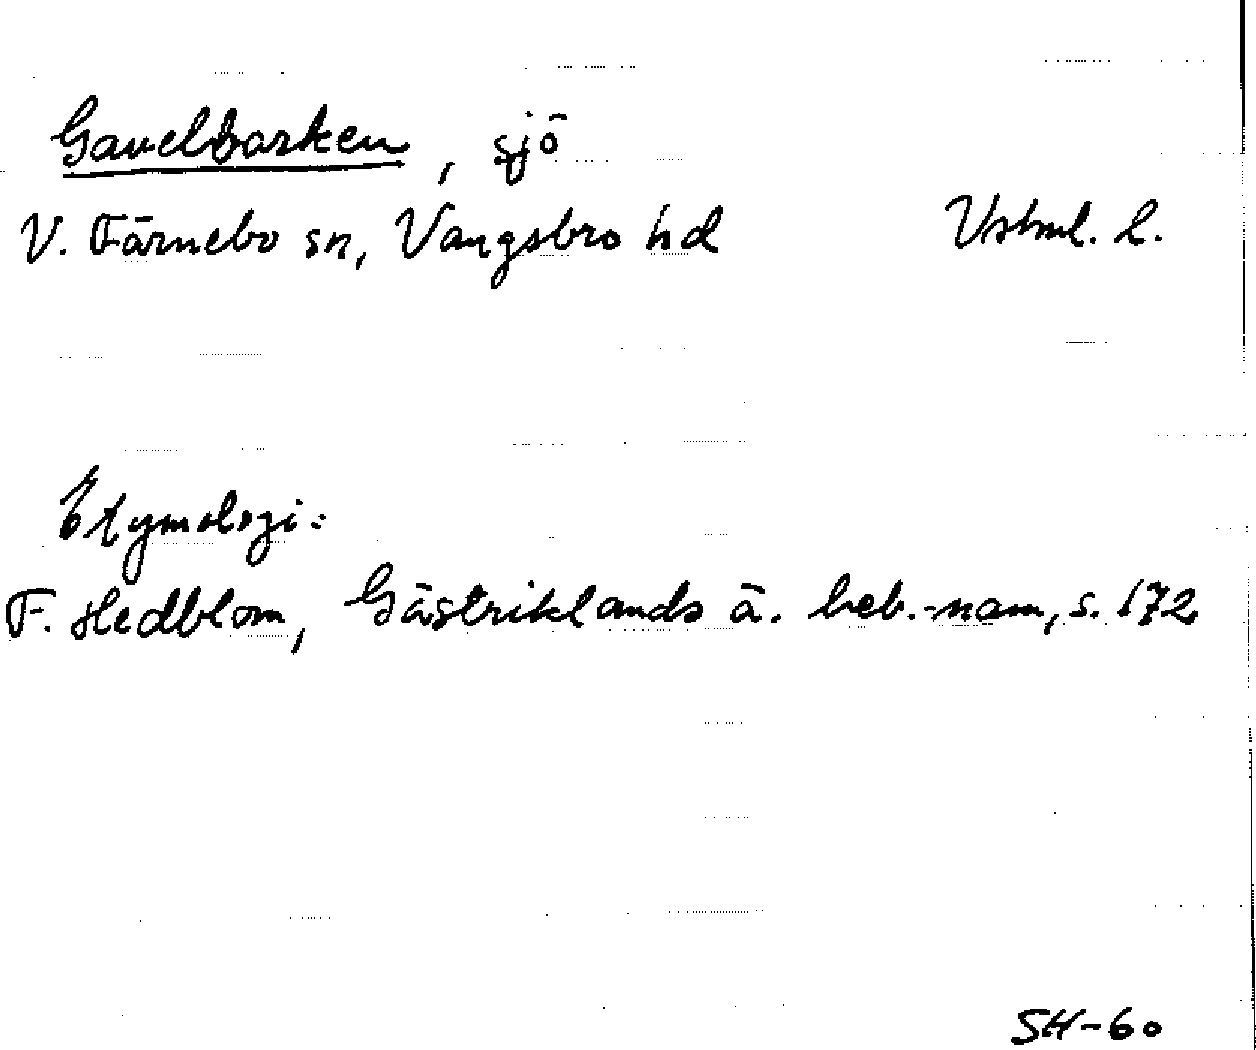 Gavelbarken, sjö
V. Färnebo sn, Vangsbro hd Vstml. l.
Etymologi:
F. Hedblom, Gästriklands ä. beb.-namn, s. 172
SH-60